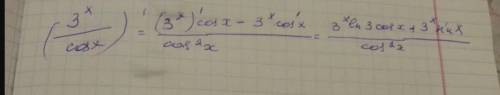 (3^x / cosx)' = ((3^x)' cosx - 3^x cos'x) / cos²x = (3^x ln3 cosx + 3^x sinx) / cos²x